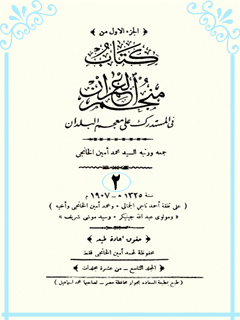 ﴿ الجزء الاول من ﴾
كتاب
منجم العمران
في المستدرك على معجم البلدان
جمعه ورتبه السيد محمد أمين الخانجي
٢
سنة ١٣٢٥ ه - ١٩٠٧ م
( على نفقة أحمد ناجي الجمالي - ومحمد أمين الخانجي وأخيه )
« ومولوى عبد الله جيتيكر - وسيد موسى شريف »
حقوق اعادة طبعه
محفوظة لمحمد أمين الخانجي فقط
المجلد التاسع - من عشرة مجلدات
( طبع بمطبعة السعادة بجوار محافظة مصر - لصاحبها محمد اسماعيل )